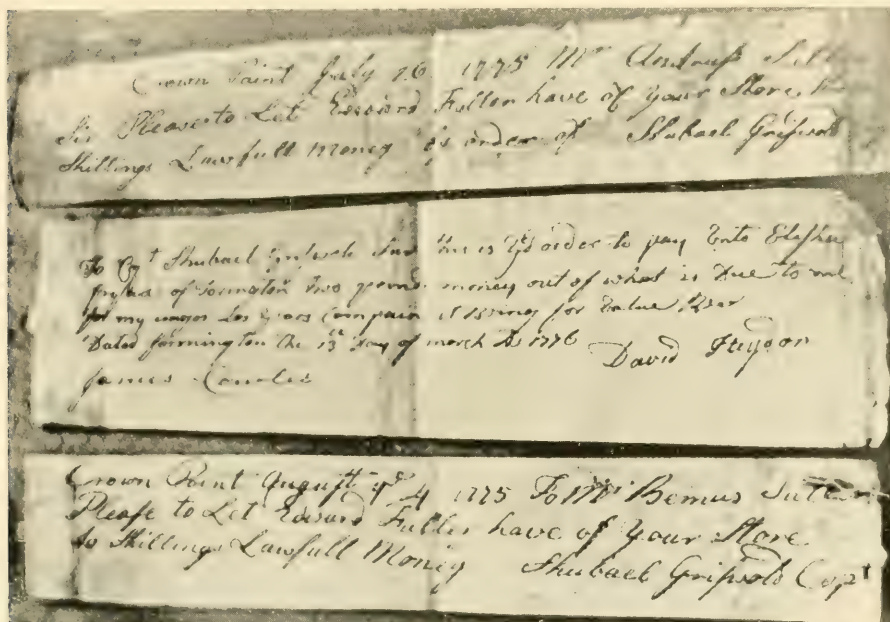 Crown Point July 26 1775 Mr
Sir Please to Let Edward Fuller have of your Store
Shillings Lawfull Money by order of Shubael Griswold
To Cpt Shubael this is yd order to pay unto
of two pound money out of what is Due to me
for my wages Las years it being for Value
Dated farmington the 13th Day of march AD 1776
David
James
Crown Point August ye 4 1775 To Mr Bemus
Please to Let Edward Fuller have of your Store
Shillings Lawfull Money Shubael Griswold Capt